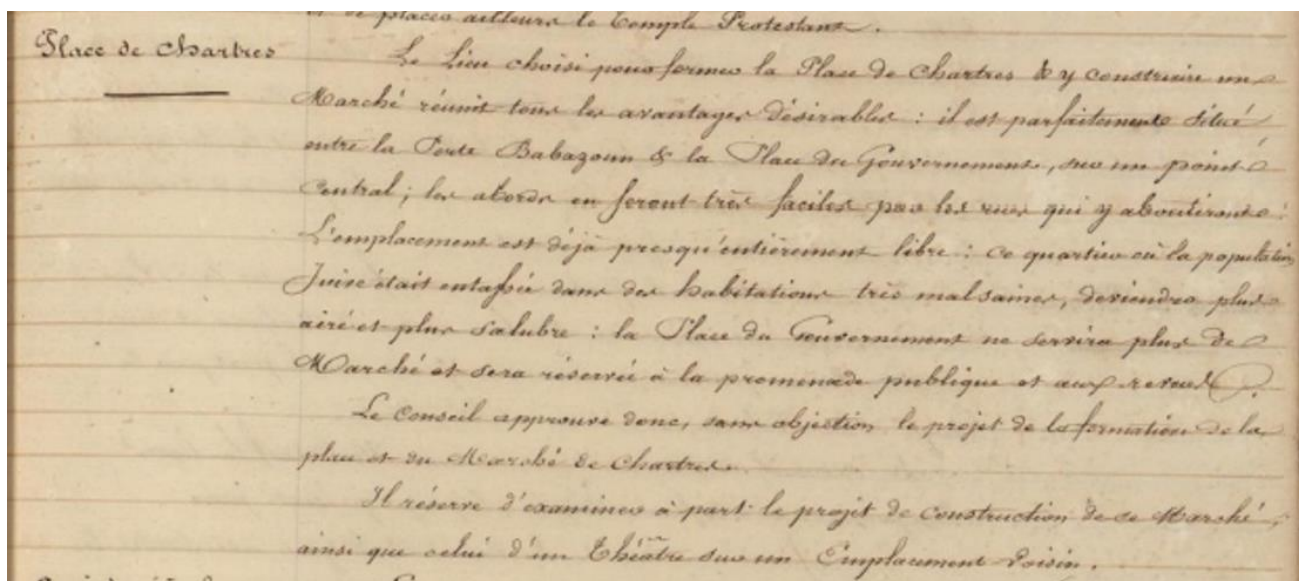 et de placer ailleurs le Temple Protestant.
Place de Chartres
Le Lieu choisi pour former la Place de Chartres & y construire un
Marché réunit tous les avantages désirables : il est parfaitement situé
entre la Porte Babazoun & la Place du Gouvernement, sur un point
Central ; les abords en seront très faciles par les rues qui y aboutiront :
L'emplacement est déjà presqu'entièrement libre : ce quartier où la population
Juive était entassée dans des habitations très malsaines, deviendra plus
aéré et plus salubre : la Place du Gouvernement ne servira plus de
Marché et sera réservée à la promenade publique et aux revues.
Le Conseil approuve donc, sans objection le projet de la formation de la
place et du Marché de Chartres.
Il réserve d'examiner à part le projet de construction de ce Marché,
ainsi que celui d'un Théâtre sur un Emplacement voisin.